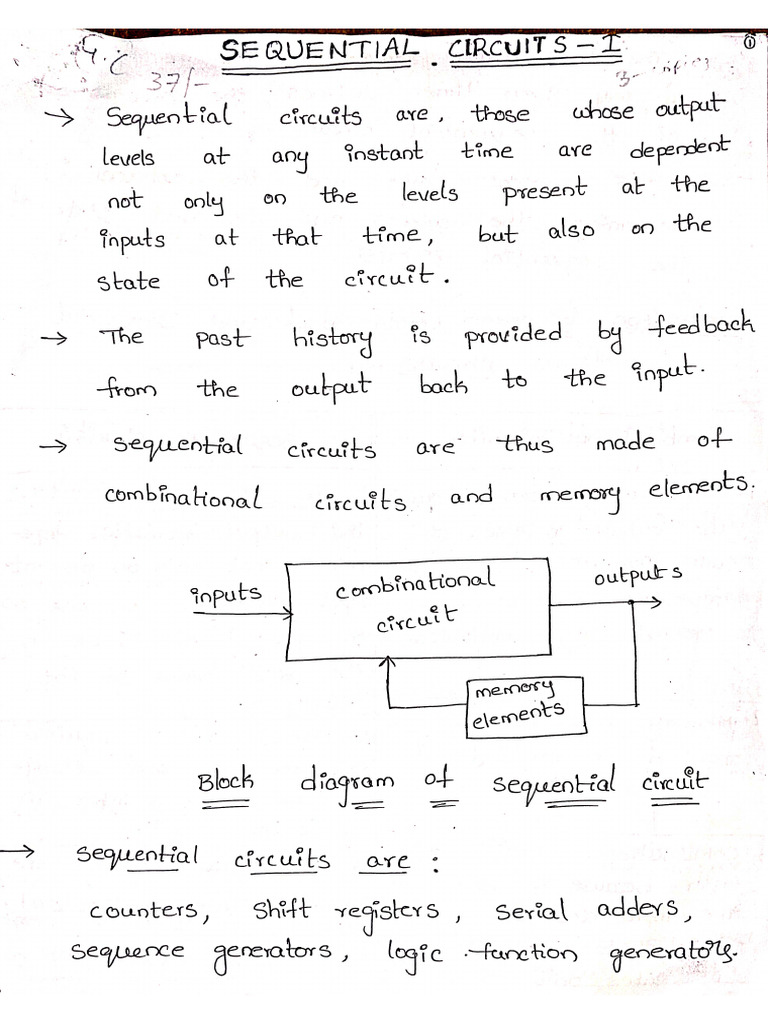 SEQUENTIAL CIRCUITS - I
①
37/-
→ Sequential circuits are, those whose output
levels at any instant time are dependent
not only on the levels present at the
inputs at that time, but also on the
state of the circuit.
→ The past history is provided by feedback
from the output back to the input.
→ sequential circuits are thus made of
combinational circuits and memory elements.
inputs
combinational
circuit
outputs
memory
elements
Block diagram of sequential circuit
→ sequential circuits are :
counters, shift registers, serial adders,
sequence generators, logic function generators.